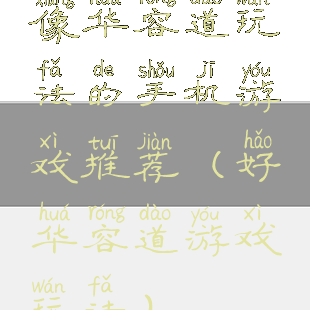 xiàng huá róng dào wán
像华容道玩
fǎ de shǒu jī yóu
法的手机游
xì tuī jiàn hǎo
戏推荐(好
huá róng dào yóu xì
华容道游戏
wán fǎ
玩法)